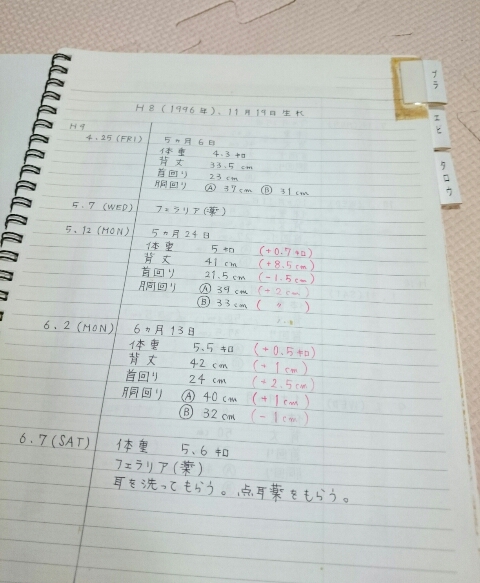 H8(1996年)、11月19日生れ
H9
4.25(FRI) 5ヵ月6日
体重 4.3キロ
背丈 33.5cm
首回り 23cm
胴回り Ⓐ 37cm Ⓑ 31cm
5.7(WED) フェラリア(薬)
5.12(MON) 5ヵ月24日
体重 5キロ (+0.7キロ)
背丈 41cm (+8.5cm)
首回り 21.5cm (-1.5cm)
胴回り Ⓐ 39cm (+2cm)
Ⓑ 33cm
6.2(MON) 6ヵ月13日
体重 5.5キロ (+0.5キロ)
背丈 42cm (+1cm)
首回り 24cm (+2.5cm)
胴回り Ⓐ 40cm (+1cm)
Ⓑ 32cm (-1cm)
6.7(SAT) 体重 5.6キロ
フェラリア(薬)
耳を洗ってもらう。点耳薬をもらう。
ブラ
エビ
タロウ